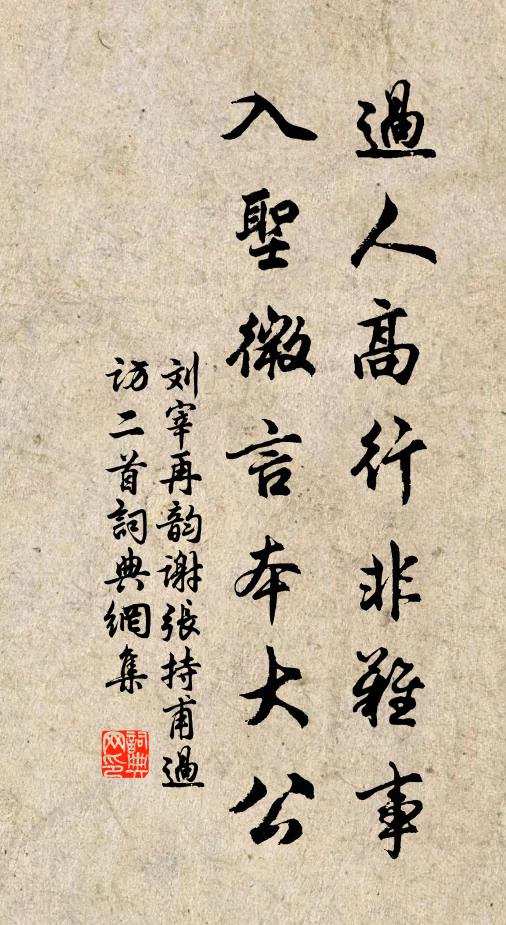 過人高行非難事
入聖微言本大公
刘宰再韵谢張持甫過
访二首詞典網集
詞典
网印